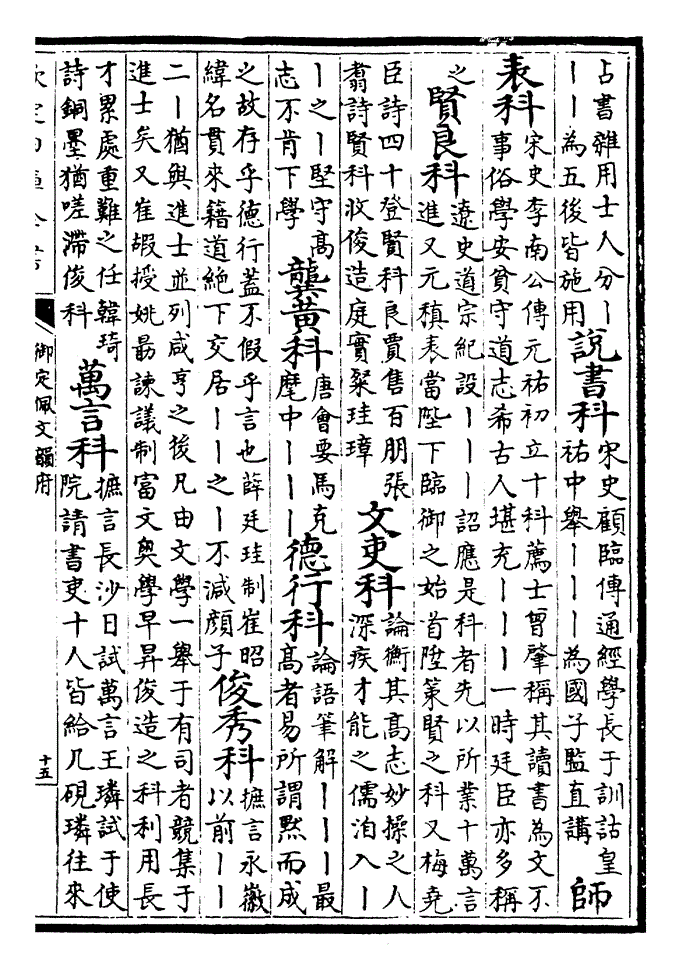 占書雜用士人分｜
｜｜為五後皆施用
說書科
宋史顧臨傳通經學長于訓詁皇
祐中舉｜｜｜為國子監直講
師
表科
宋史李南公傳元祐初立十科薦士曾肇稱其讀書為文不
事俗學安貧守道志希古人堪充｜｜｜一時廷臣亦多稱
之
賢良科
遼史道宗紀設｜｜｜詔應是科者先以所業十萬言
進又元稹表當陛下臨御之始首陞策賢之科又梅堯
臣詩四十登賢科良賈售百朋張
翥詩賢科收俊造庭實粲珪璋
文吏科
論衡其高志妙操之人
深疾才能之儒洎入｜
｜之｜堅守高
志不肯下學
龔黃科
唐會要馬克
麾中｜｜｜
德行科
論語筆解｜｜｜最
高者易所謂黙而成
之故存乎德行蓋不假乎言也薛廷珪制崔昭
緯名貫來籍道絶下交居｜｜之｜不減顔子
俊秀科
摭言永徽
以前｜｜
二｜猶與進士並列咸亨之後凡由文學一舉于有司者競集于
進士矣又崔嘏授姚勗諫議制富文奥學早昇俊造之科利用長
才累處重難之任韓琦
詩銅墨猶嗟滯俊科
萬言科
摭言長沙日試萬言王璘試于使
院請書吏十人皆給几硯璘往來
御定佩文韻府
十五